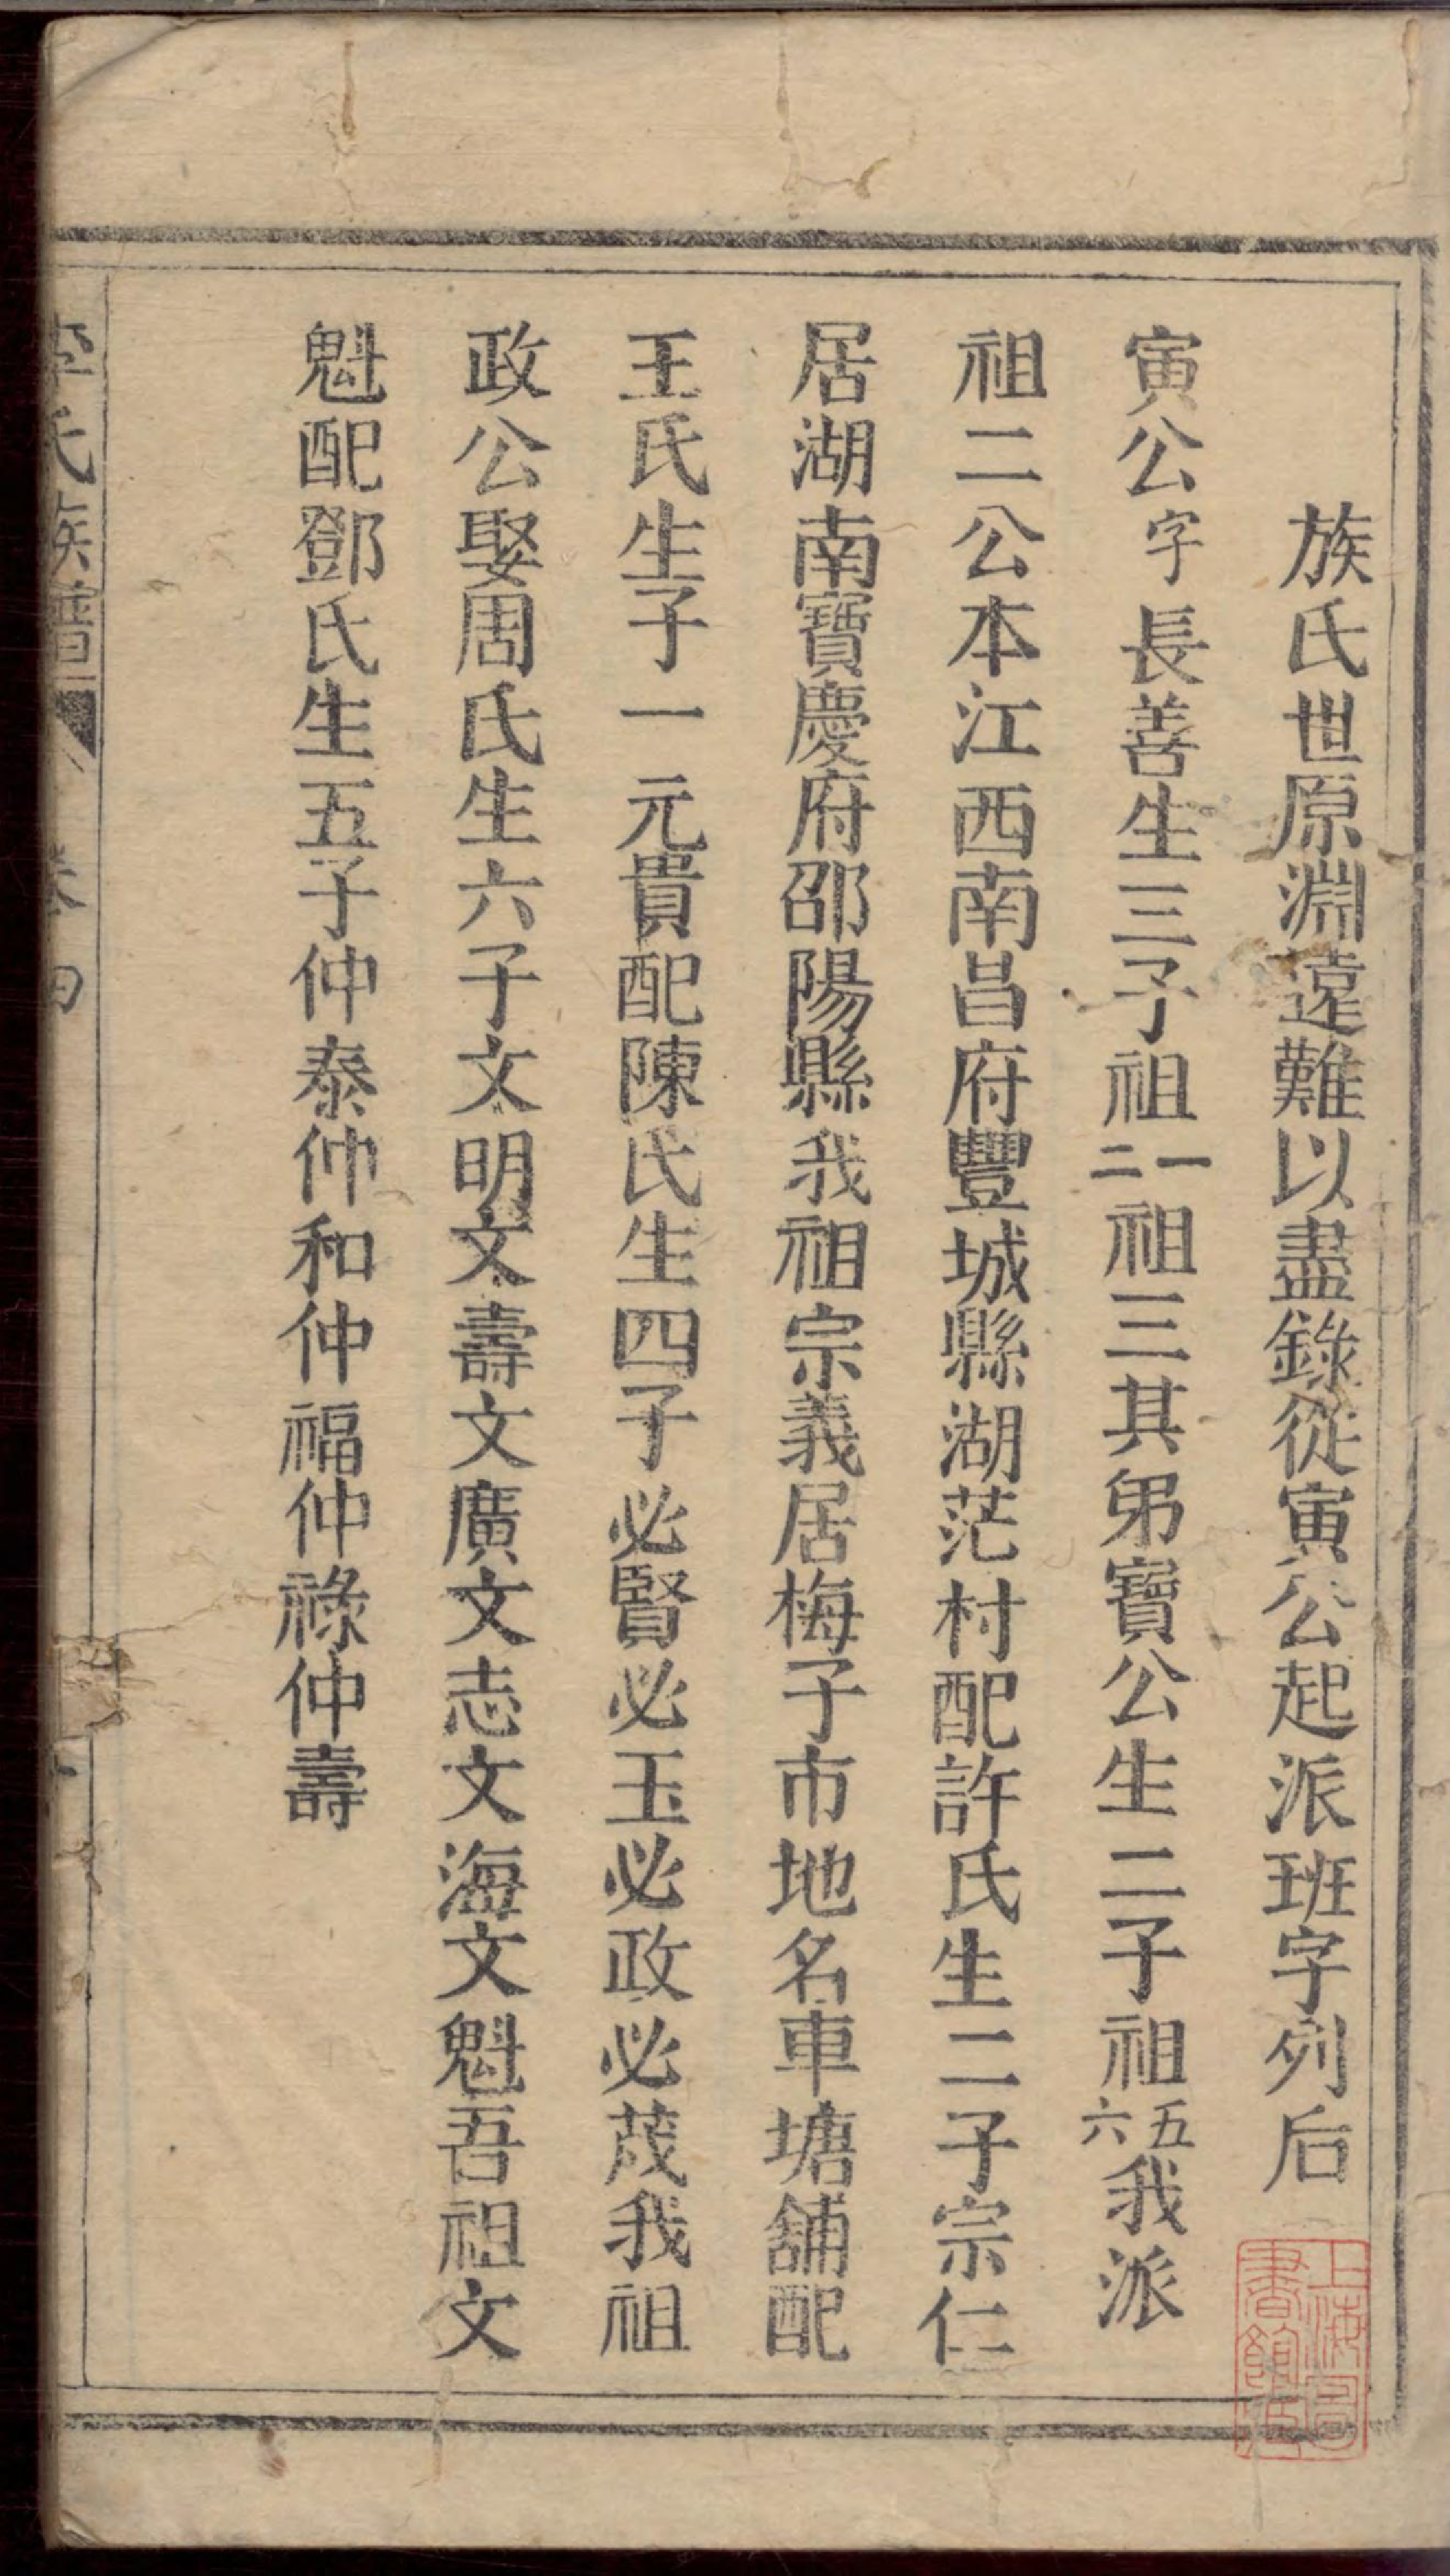 族氏世原淵遠難以盡錄從寅公起派班字列后
寅公字長善生三子祖一二祖三其弟寶公生二子祖五六我派
祖二公本江西南昌府豐城縣湖茫村配許氏生二子宗仁
居湖南寶慶府邵陽縣我祖宗義居梅子市地名車塘舖配
王氏生子一元貴配陳氏生四子必賢必玉必政必茂我祖
政公娶周氏生六子文明文壽文廣文志文海文魁吾祖文
魁配鄧氏生五子仲泰仲和仲福仲祿仲壽
李氏族譜 卷四
上海圖書館藏